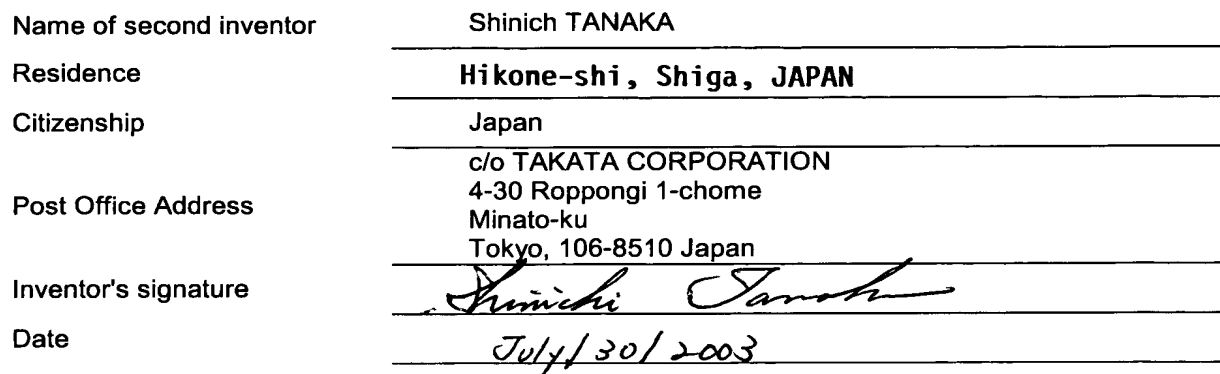 Name of second inventor Shinich TANAKA
Residence Hikone-shi, Shiga, JAPAN
Citizenship Japan
c/o TAKATA CORPORATION
4-30 Roppongi 1-chome
Post Office Address
Minato-ku
Tokyo, 106-8510 Japan
Inventor's signature Shinichi Tanaka
Date July/30/2003